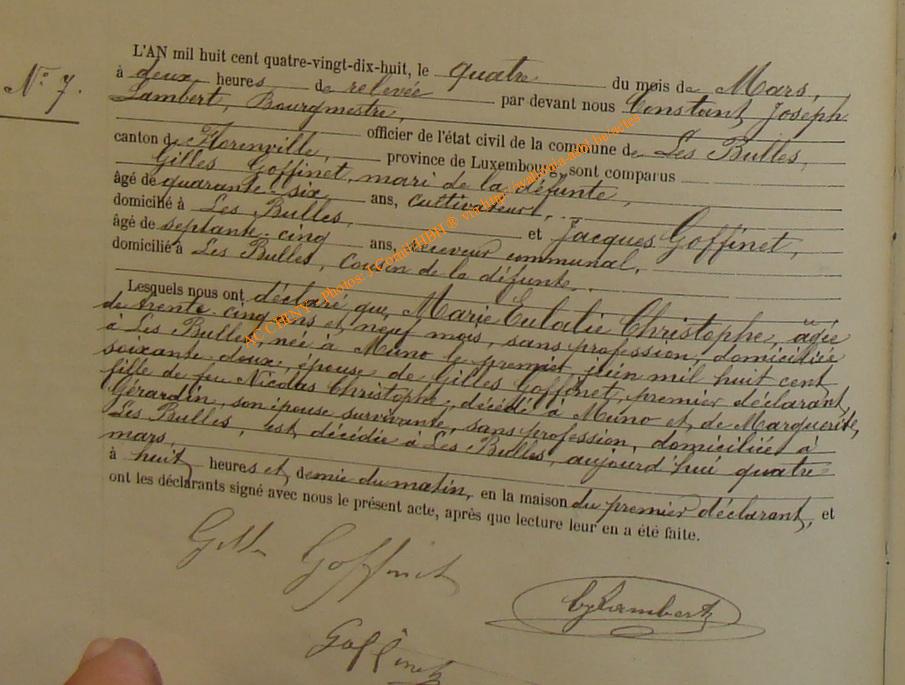 N° 7.
L'AN mil huit cent quatre-vingt-dix-huit, le quatre du mois de Mars,
à deux heures de relevée par devant nous Constant Joseph
Lambert, Bourgmestre,
officier de l'état civil de la commune de Les Bulles,
canton de Florenville, province de Luxembourg, sont comparus
Gilles Goffinet, mari de la défunte,
âgé de quarante-six ans, cultivateur,
domicilié à Les Bulles, et Jacques Goffinet,
âgé de septante-cinq ans, receveur communal,
domicilié à Les Bulles, cousin de la défunte.
Lesquels nous ont déclaré que Marie Eulalie Christophe, âgée
de trente-cinq ans et neuf mois, sans profession, domiciliée
à Les Bulles, née à Muno le premier juin mil huit cent
soixante-deux, épouse de Gilles Goffinet, premier déclarant,
fille de feu Nicolas Christophe, décédé à Muno et de Marguerite
Gérardin, son épouse survivante, sans profession, domiciliée à
Les Bulles, est décédée à Les Bulles, aujourd'hui quatre
mars,
à huit heures et demie du matin, en la maison du premier déclarant, et
ont les déclarants signé avec nous le présent acte, après que lecture leur en a été faite.
Goffinet
CJLambert
Goffinet